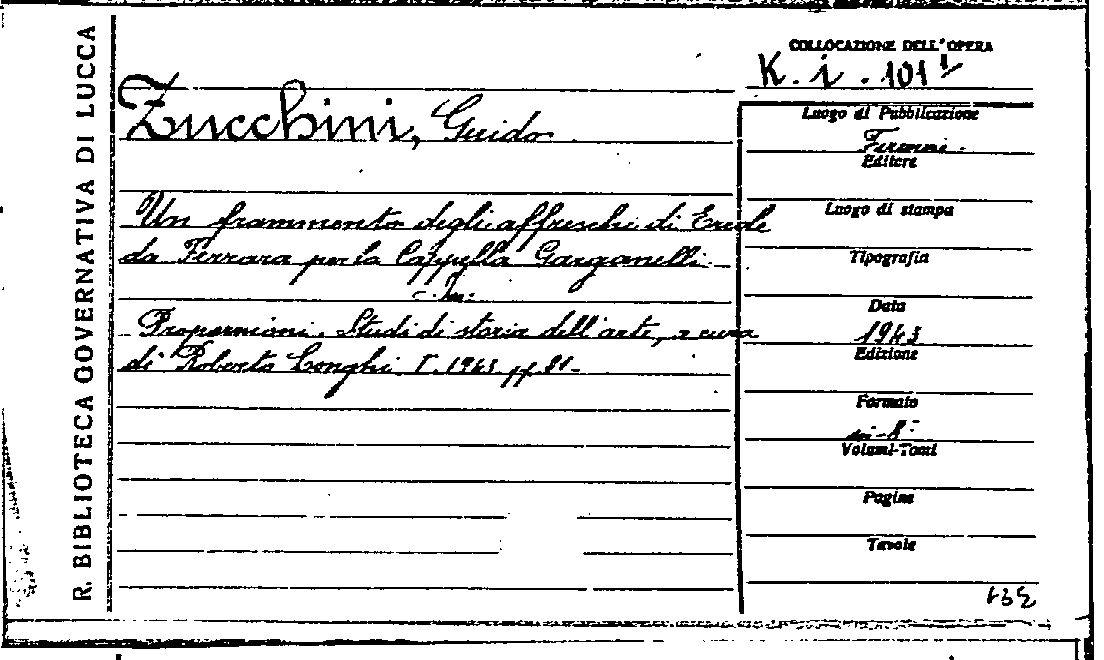 R. BIBLIOTECA GOVERNATIVA DI LUCCA
COLLOCAZIONE DELL'OPERA
K. i. 101
Zucchini, Guido
Un frammento degli affreschi di Ercole
da Ferrara per la Cappella Garganelli.
In:
Proporzioni. Studi di storia dell'arte, a cura
di Roberto Longhi. I. 1943 pp. 81-
Luogo di Pubblicazione
Firenze.
Editore
Luogo di stampa
Tipografia
Data
1943
Edizione
Formato
in-8°
Volumi-Tomi
Pagine
Tavole